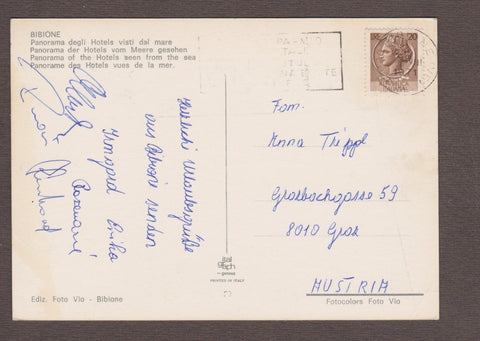 BIBIONE
Panorama degli Hotels visti dal mare
Panorama der Hotels vom Meere gesehen
Panorama of the Hotels seen from the sea
Panorama des Hotels vues de la mer.
Herzliche Urlaubsgrüße
aus Bibione senden
Irmgard Erika
Rosemarie
Fam.
Anna Trippl
Grasbachgasse 59
8010 Graz
AUSTRIA
20
ital
graph
genova
PRINTED IN ITALY
Ediz. Foto Vio - Bibione
Fotocolors Foto Vio